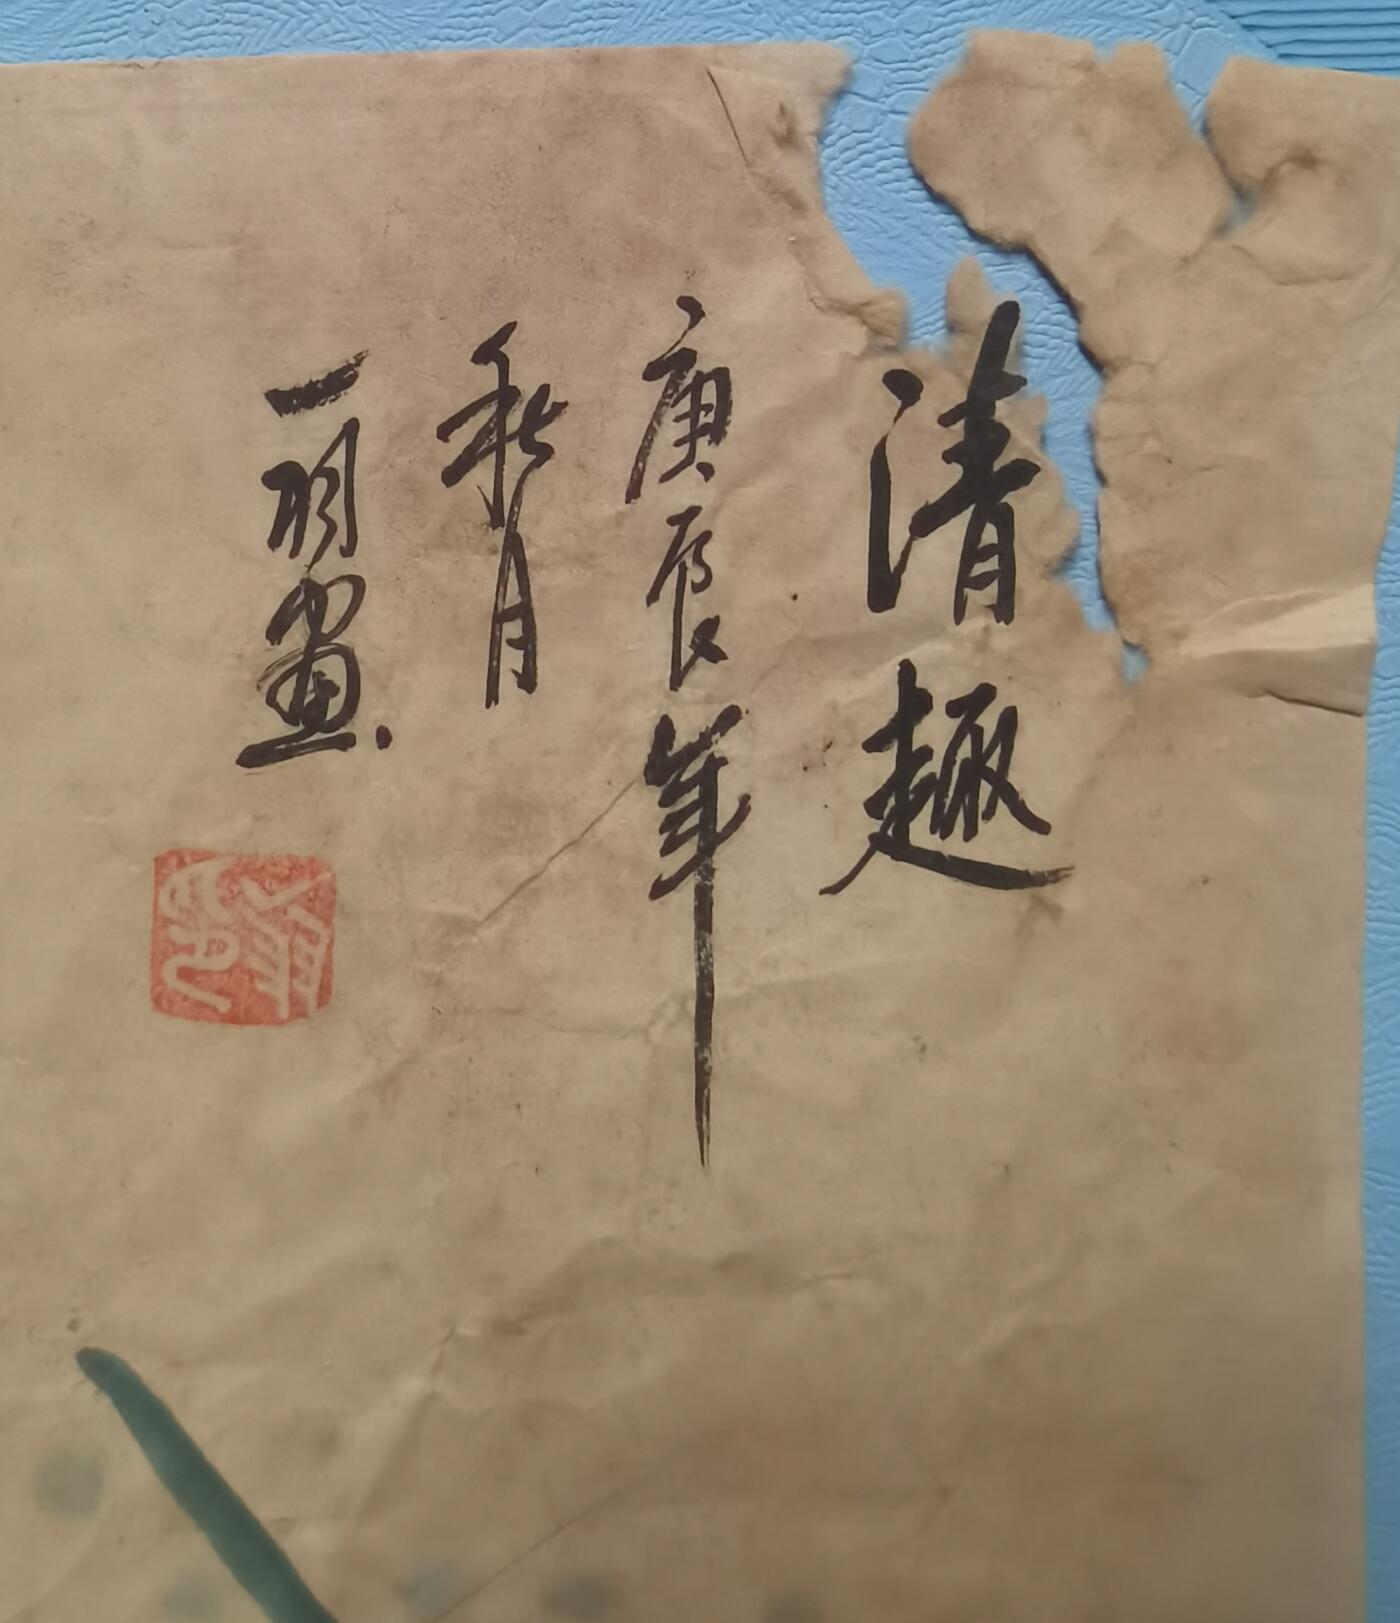 清趣
庚辰年
秋月
一明畫